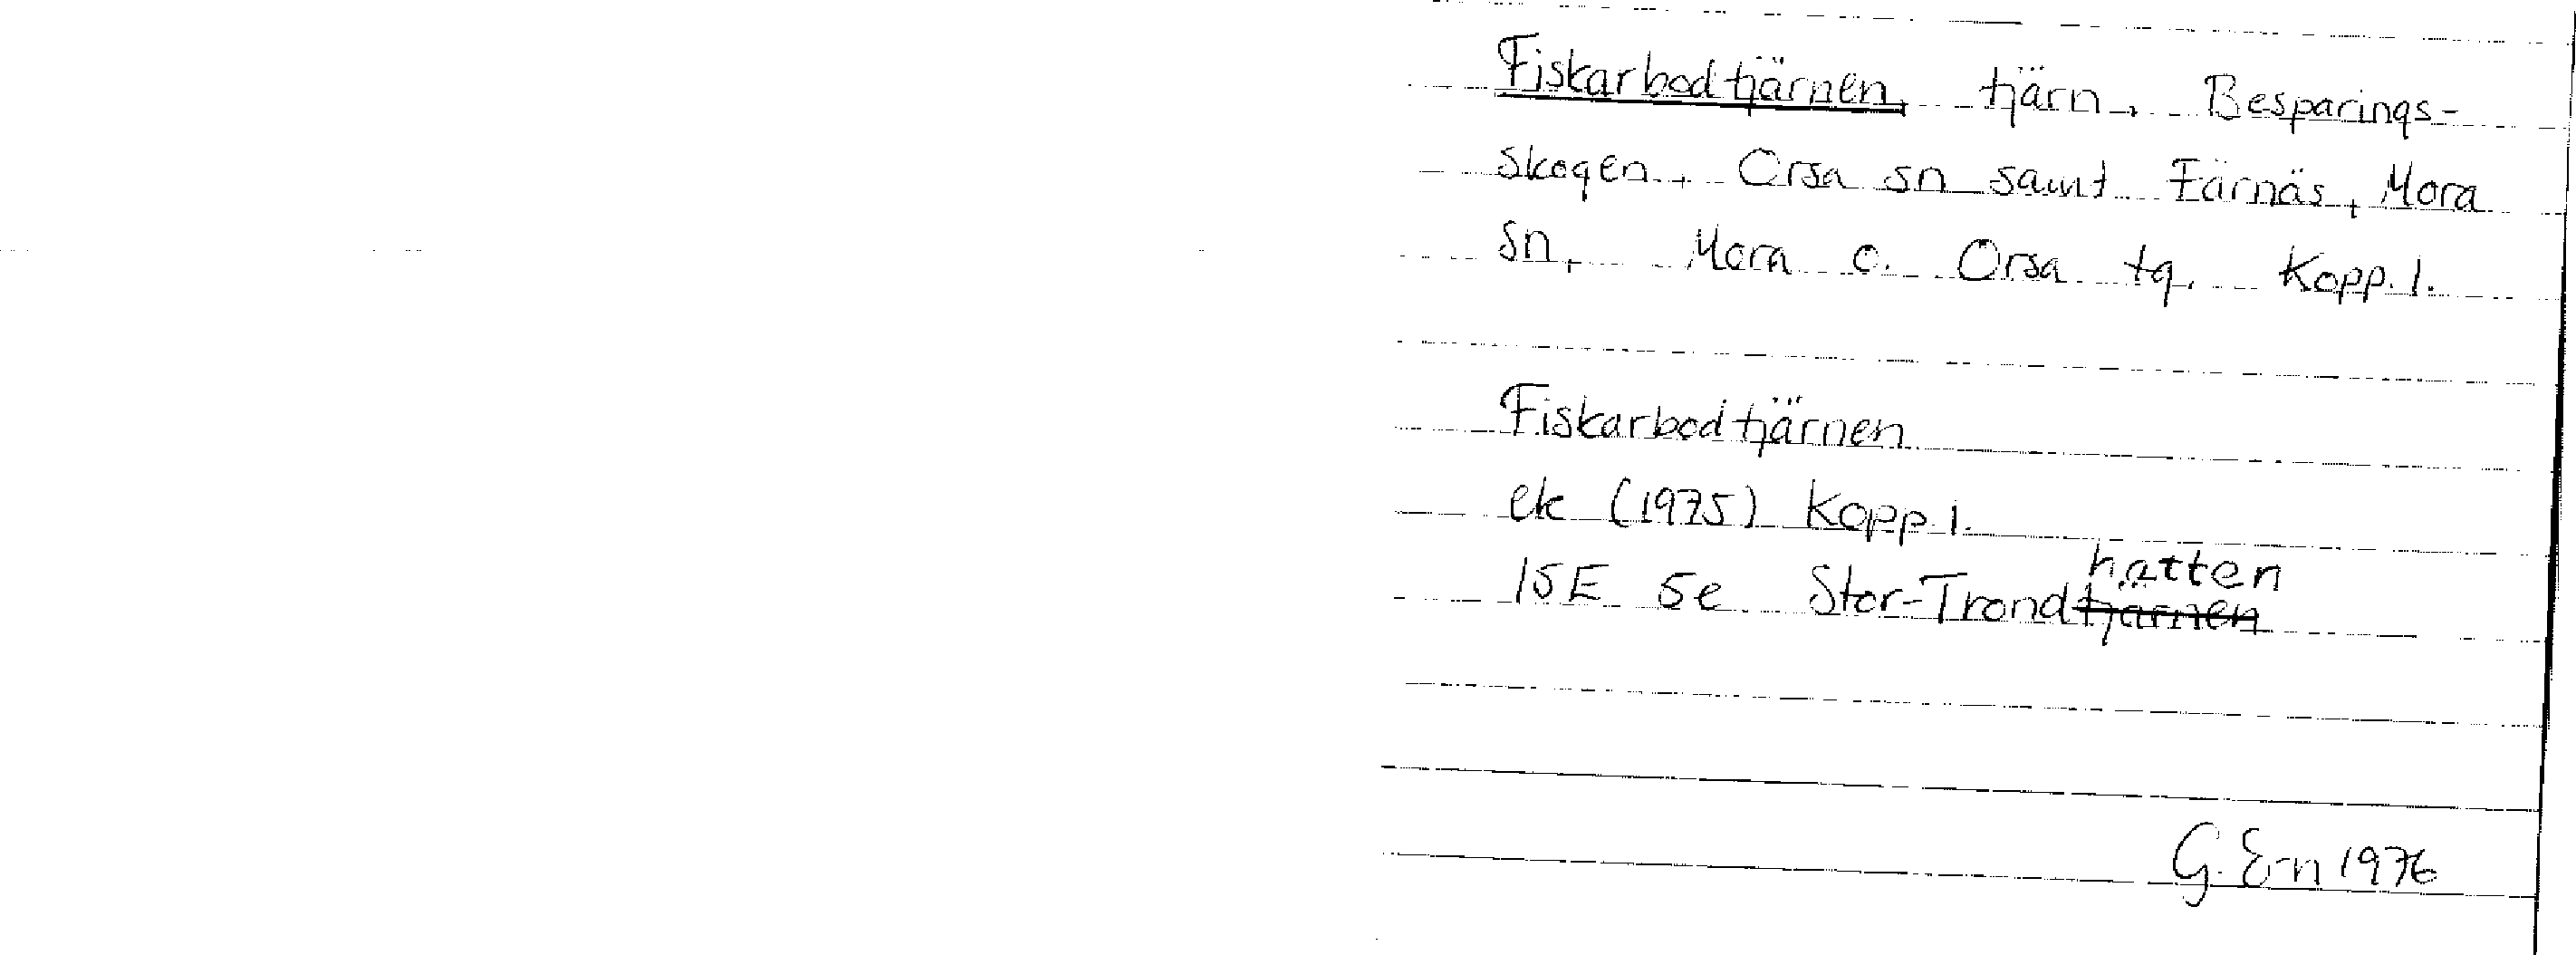 Fiskarbodtjärnen, tjärn, Besparings-
skogen, Orsa sn samt Färnäs, Mora
sn, Mora o. Orsa tg. Kopp. l.
Fiskarbodtjärnen
ek (1975) Kopp. l.
hatten
15E 5e Stor-Trondtjärnen
G. E-n 1976